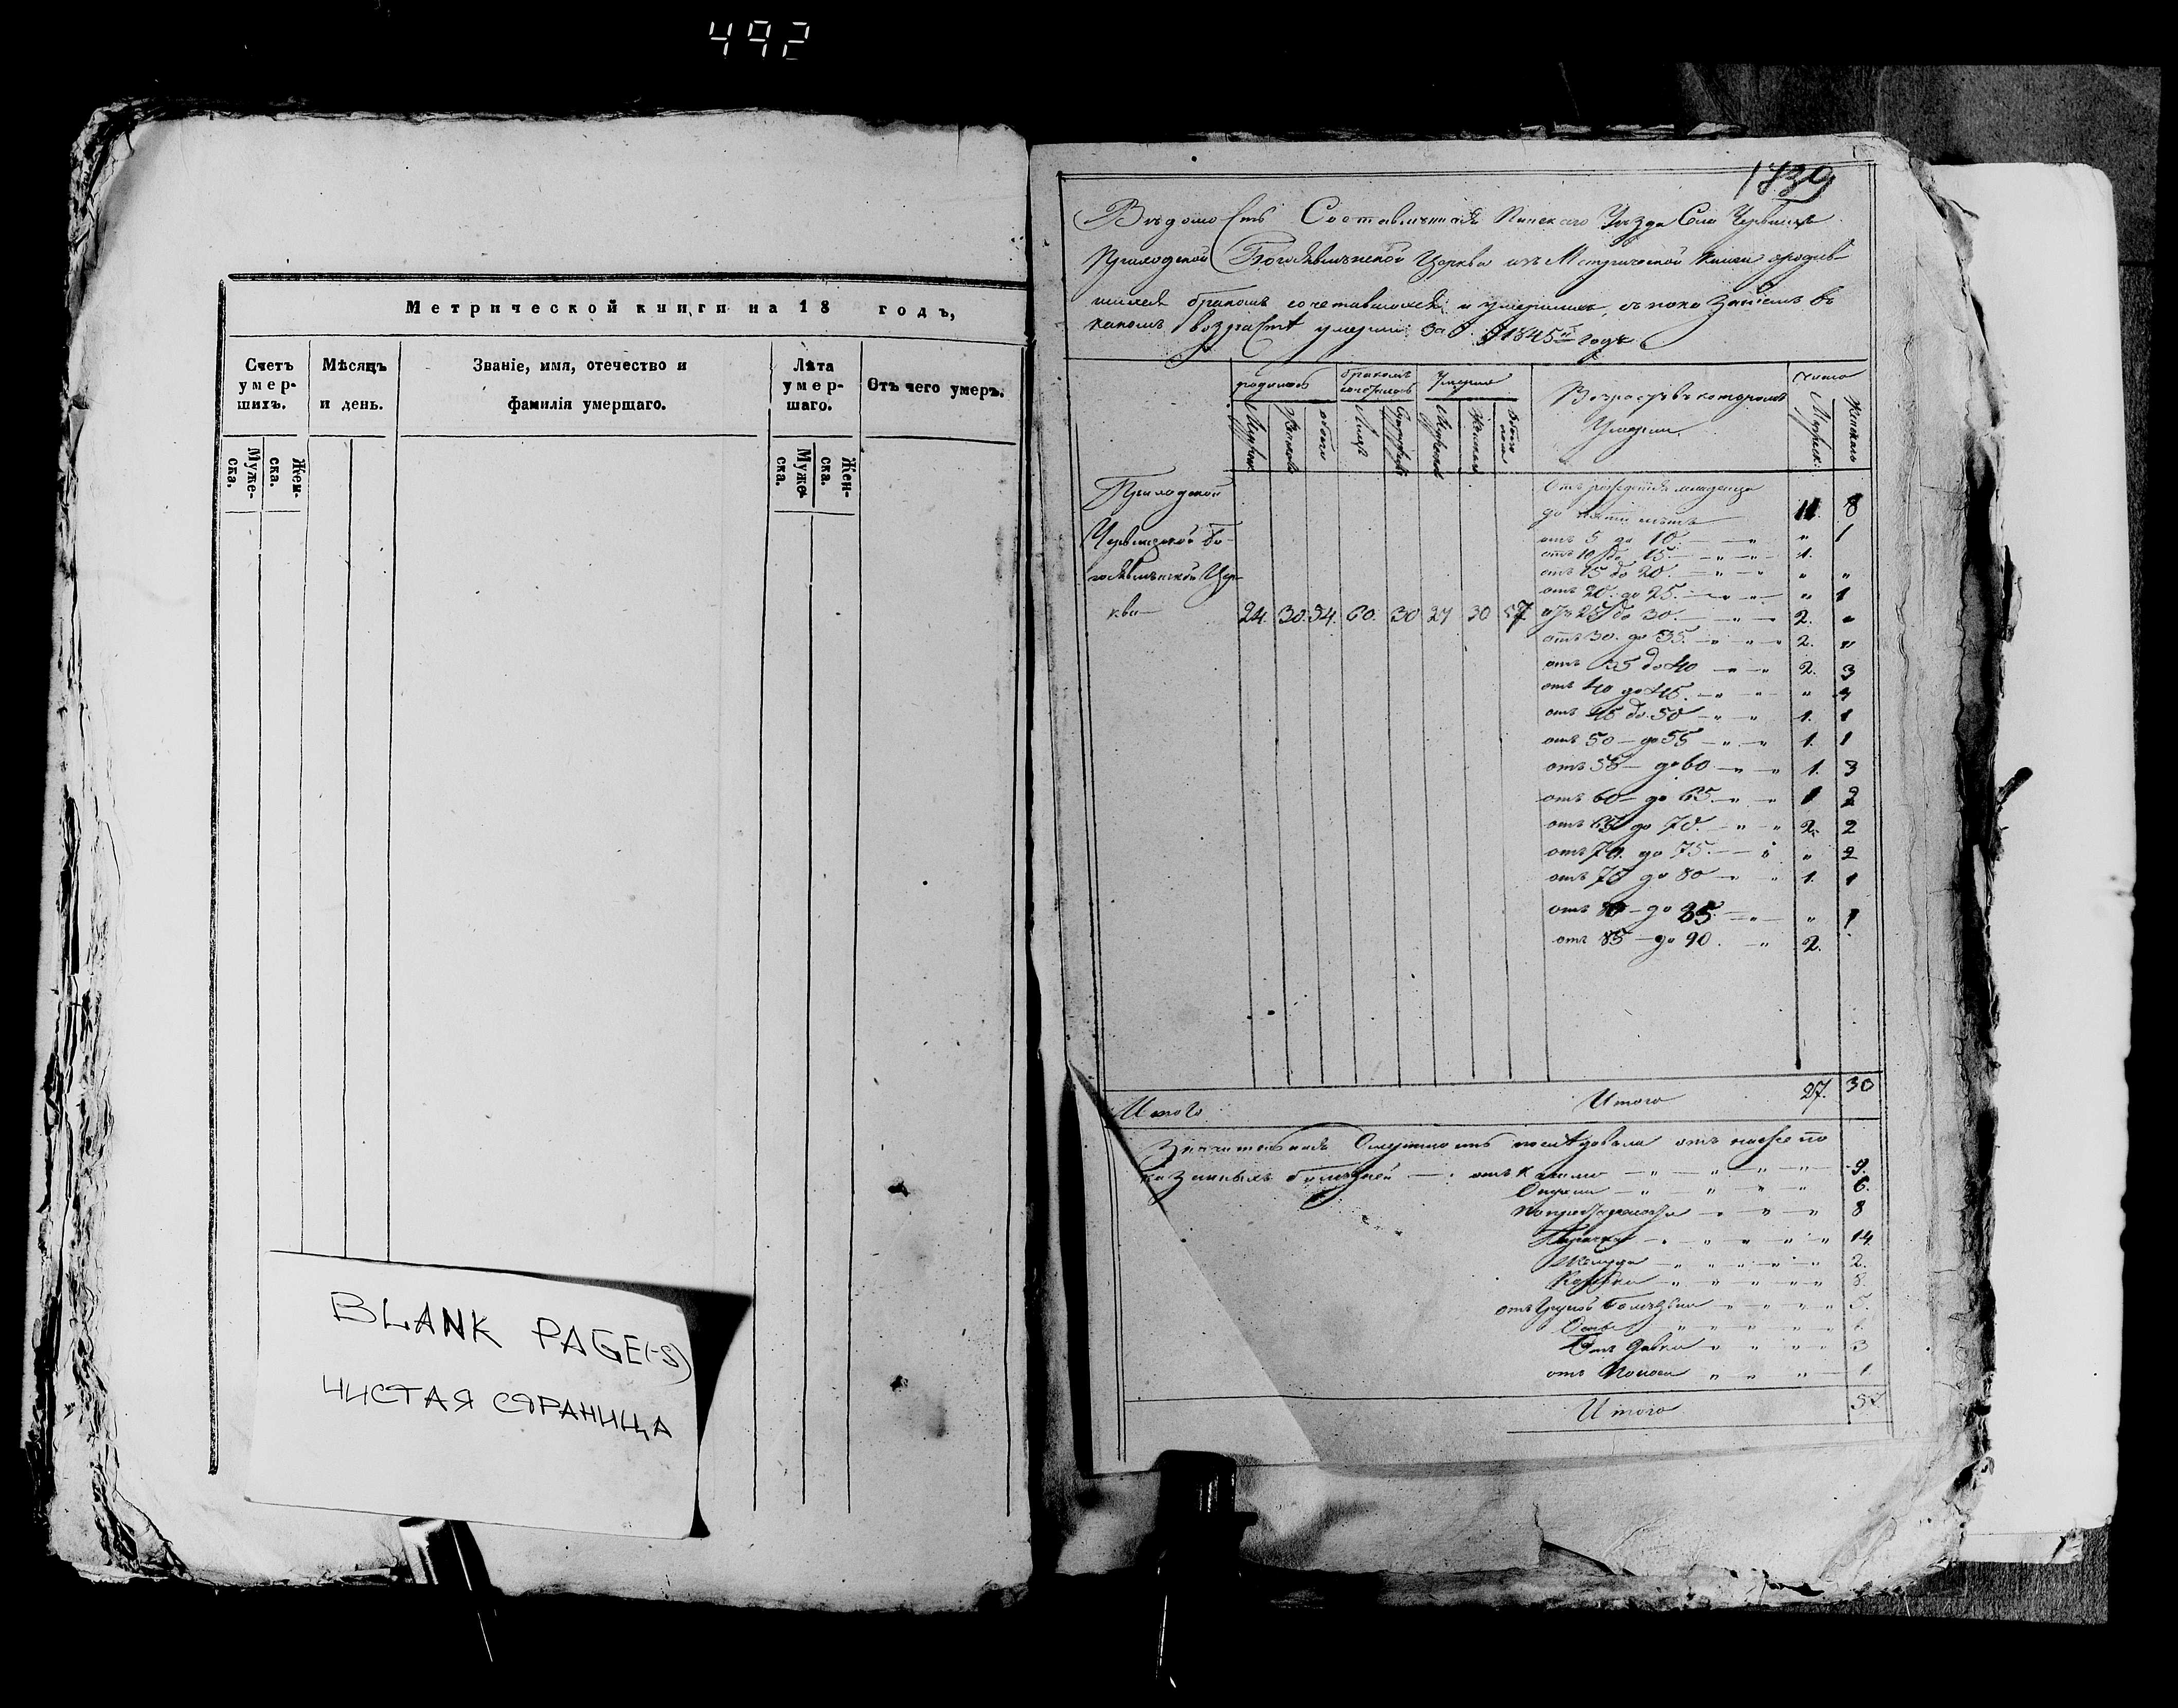 492
Метрической книги на 18 годъ,
Счетъ умер-шихъ.
Мѣсяцъ и день.
Званіе, имя, отечество и фамилія умершаго.
Лѣта умер-шаго.
Отъ чего умеръ.
Муже-ска.
Жен-ска.
Муже-ска.
Жен-ска.
BLANK PAGE(-S)
ЧИСТАЯ СТРАНИЦА
1739
Вѣдомость Составленная Пинскаго Уѣзда Села
Приходской Богоявленской Церкви изъ Метрической Книги о родив-
шихся бракомъ сочетавшихся и умершихъ, съ показаніемъ въ
какомъ возрастѣ умерли за 1845й годъ
родилось
бракомъ
Умерло
Возрастъ въ которомъ
Умерли
число
обоего
Лицъ
обоего пола
Приходской
Бо-
гоявленской Цер-
кви
24. 30. 54. 60. 30 27 30 57
отъ рожденія младенца
до пяти лѣтъ 11. 8
отъ 5 до 10. " 1
отъ 10 до 15. 1.
отъ 15 до 20. " "
отъ 20. до 25. " 1
отъ 25 до 30. 2. "
отъ 30. до 35. 2. "
отъ 35 до 40 2. 3
отъ 40 до 45. "
отъ 45 до 50 1. 1
отъ 50 до 55 1. 1
отъ 55 до 60 1. 3
отъ 60 до 65. 1 2
отъ 65 до 70. 2. 2
отъ 70. до 75. " 2
отъ 75 до 80 1. 1
отъ 80 до 85. " 1
отъ 85 до 90. 2.
Итого
Итого 27. 30
Значительная Смертность послѣдовала отъ ниже по
казанныхъ болѣзней отъ Кашлю 9.
Опухли 6.
8
Горячки 14.
Желудка 2.
8.
болѣзни 5.
Оспы 1.
3
отъ Поноса 1
Итого 57.